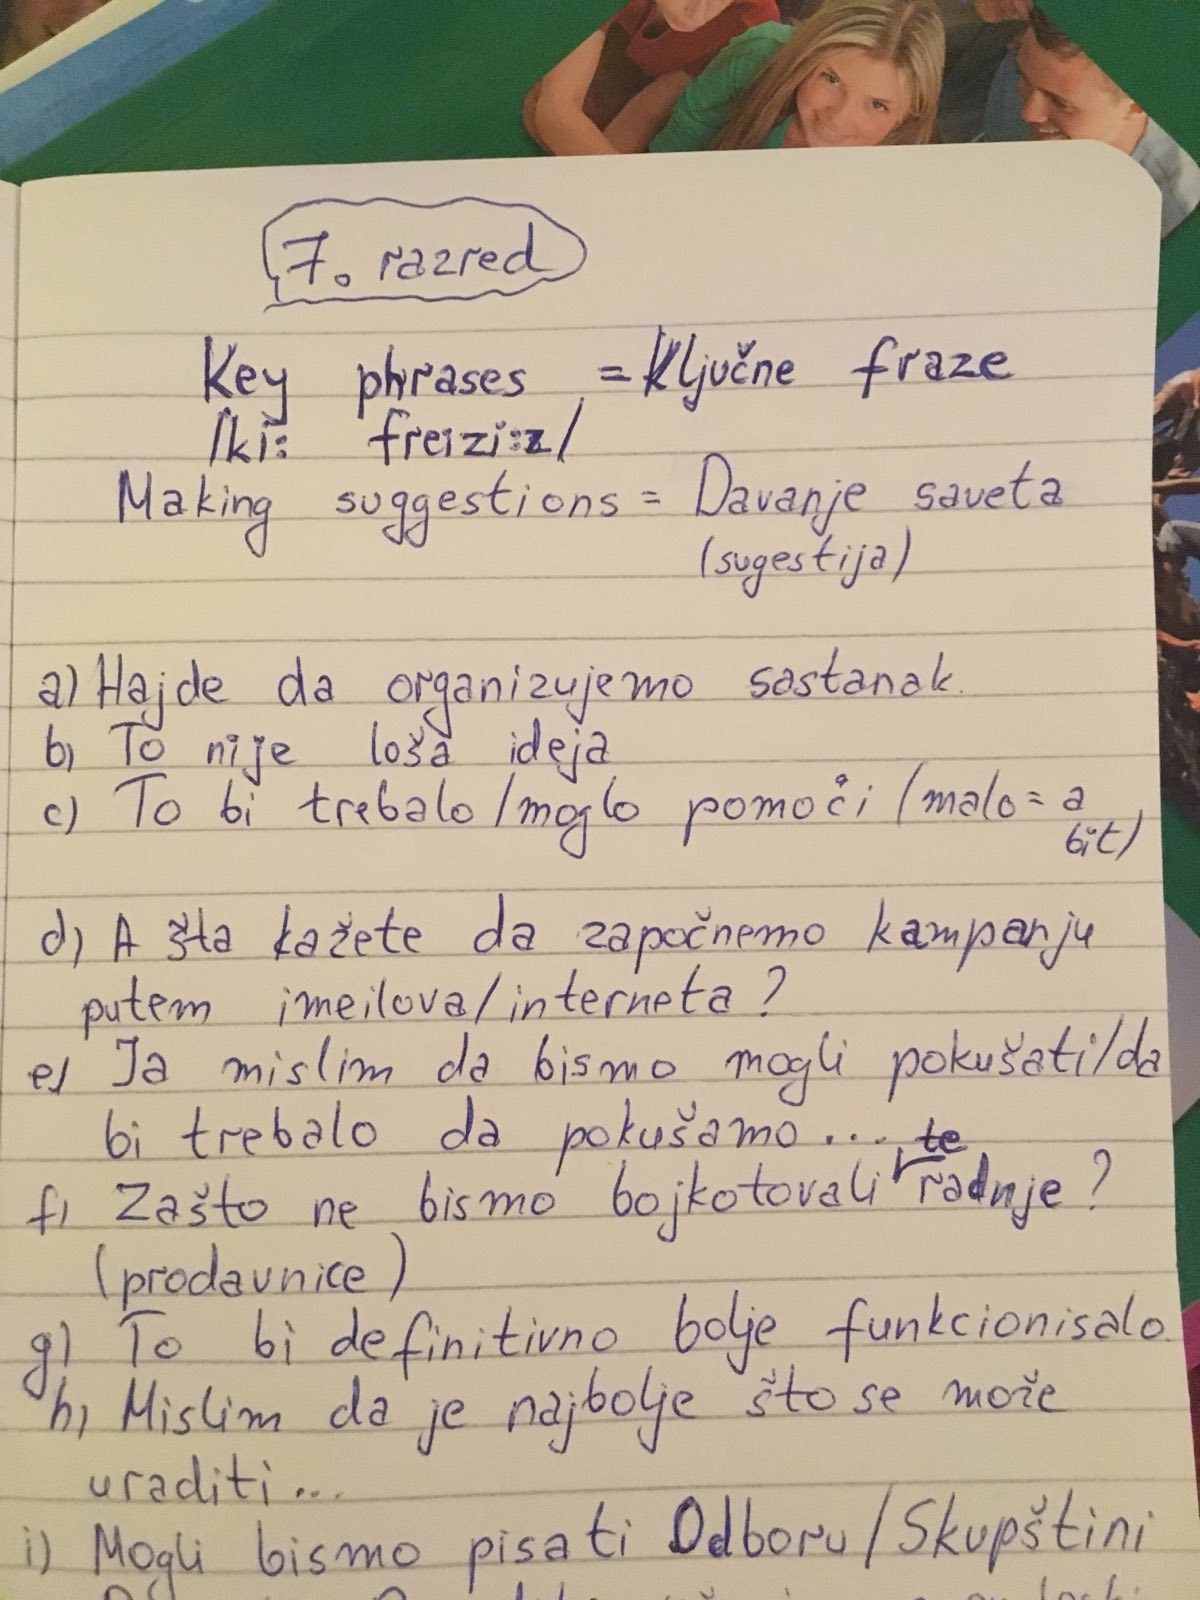 7. razred
Key phrases = Ključne fraze
/ki: freizi:z/
Making suggestions = Davanje saveta
(sugestija)
a) Hajde da organizujemo sastanak.
b) To nije loša ideja
c) To bi trebalo/moglo pomoći (malo = a
bit)
d) A šta kažete da započnemo kampanju
putem imeilova/interneta?
e) Ja mislim da bismo mogli pokušati/da
bi trebalo da pokušamo...
te
f) Zašto ne bismo bojkotovali radnje?
(prodavnice)
g) To bi definitivno bolje funkcionisalo.
h) Mislim da je najbolje što se može
uraditi...
i) Mogli bismo pisati Odboru/Skupštini